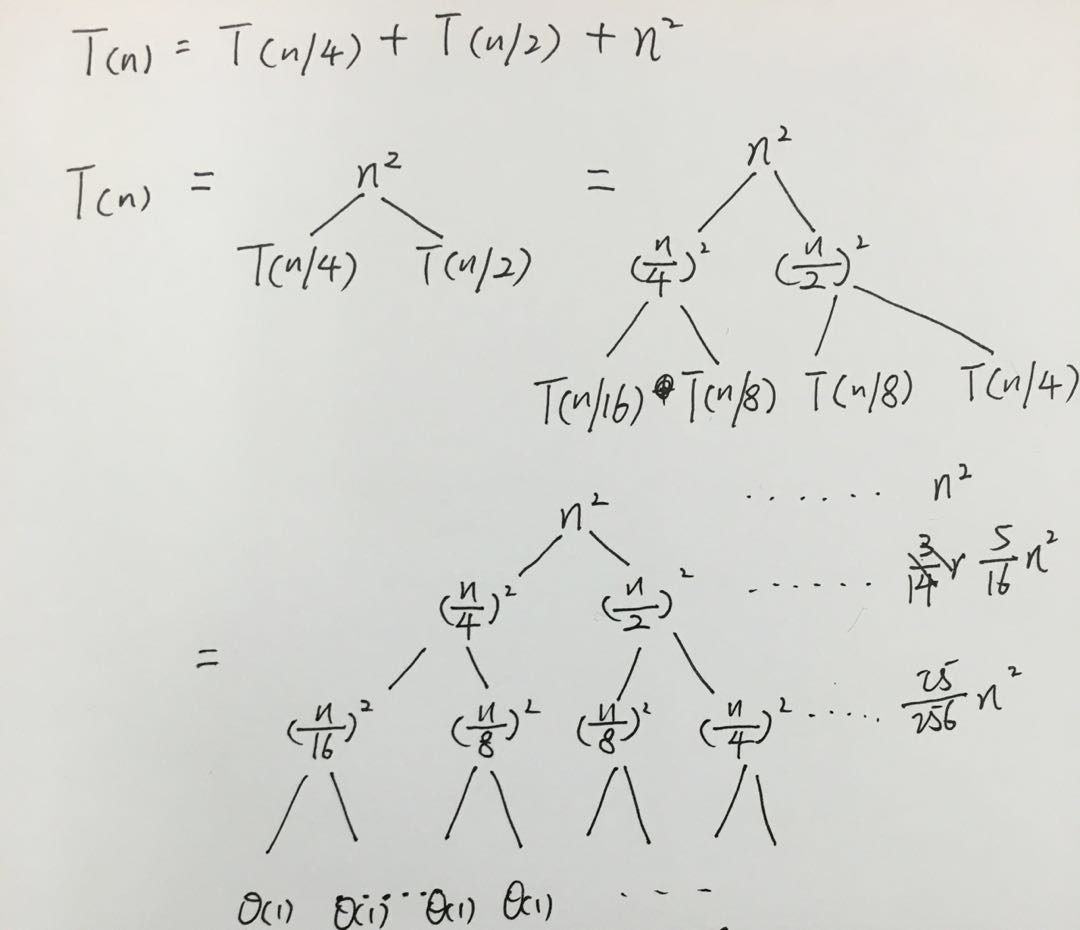 T(n) = T(n/4) + T(n/2) + n²
T(n) = n² = n²
T(n/4) T(n/2) (n/4)² (n/2)²
T(n/16) T(n/8) T(n/8) T(n/4)
n² ...... n²
(n/4)² (n/2)² ...... 5/16 n²
=
(n/16)² (n/8)² (n/8)² (n/4)² ..... 25/256 n²
θ(1) θ(1) ... θ(1) θ(1) ....